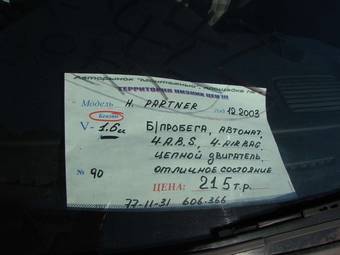 Авторынок "Монтажный"
ТЕРРИТОРИЯ НИЗКИХ ЦЕН!!!
Модель H. PARTNER год 12.2003
Бензин
V- 1.6сс Б/ПРОБЕГА, АВТОМАТ,
4.A.B.S, 4.AIRBAG,
ЦЕПНОЙ ДВИГАТЕЛЬ,
№ 90 ОТЛИЧНОЕ СОСТОЯНИЕ
ЦЕНА: 215 т.р.
77-11-31 606.366